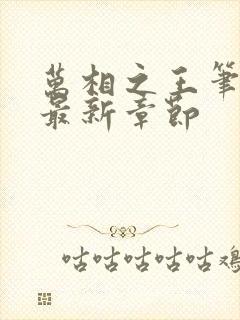 萬相之王筆
最新章節
咕咕咕咕咕雞